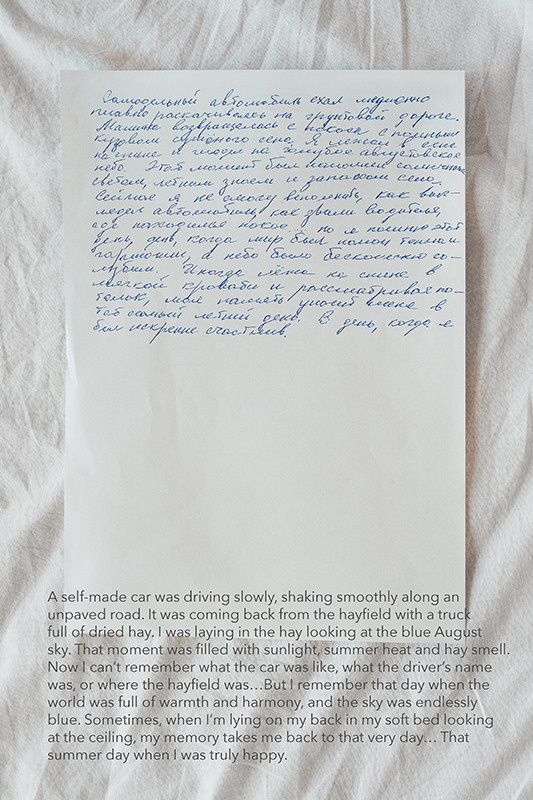 Самодельный автомобиль ехал медленно
плавно раскачиваясь на грунтовой дороге.
Машина возвращалась с покоса с полным
кузовом душистого сена. Я лежал в сене
на спине и глядел на голубое августовское
небо. Этот момент был наполнен солнечным
светом, летним зноем и запахом сена.
Сейчас я не смогу вспомнить, как выг-
лядел автомобиль, как звали водителя,
где находился покос... но я помню этот
день, день, когда мир был полон тепла и
гармонии, а небо было бесконечно го-
лубым. Иногда лёжа на спине в
мягкой кровати и рассматривая по-
толок, моя память уносит меня в
тот самый летний день. В день, когда я
был искренне счастлив.
A self-made car was driving slowly, shaking smoothly along an
unpaved road. It was coming back from the hayfield with a truck
full of dried hay. I was laying in the hay looking at the blue August
sky. That moment was filled with sunlight, summer heat and hay smell.
Now I can’t remember what the car was like, what the driver’s name
was, or where the hayfield was…But I remember that day when the
world was full of warmth and harmony, and the sky was endlessly
blue. Sometimes, when I’m lying on my back in my soft bed looking
at the ceiling, my memory takes me back to that very day… That
summer day when I was truly happy.